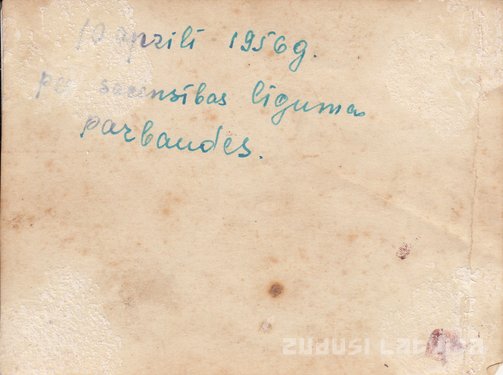 10 aprīlī 1956g.
pēc sacensības līguma
pārbaudes.
Zudusī Latvija